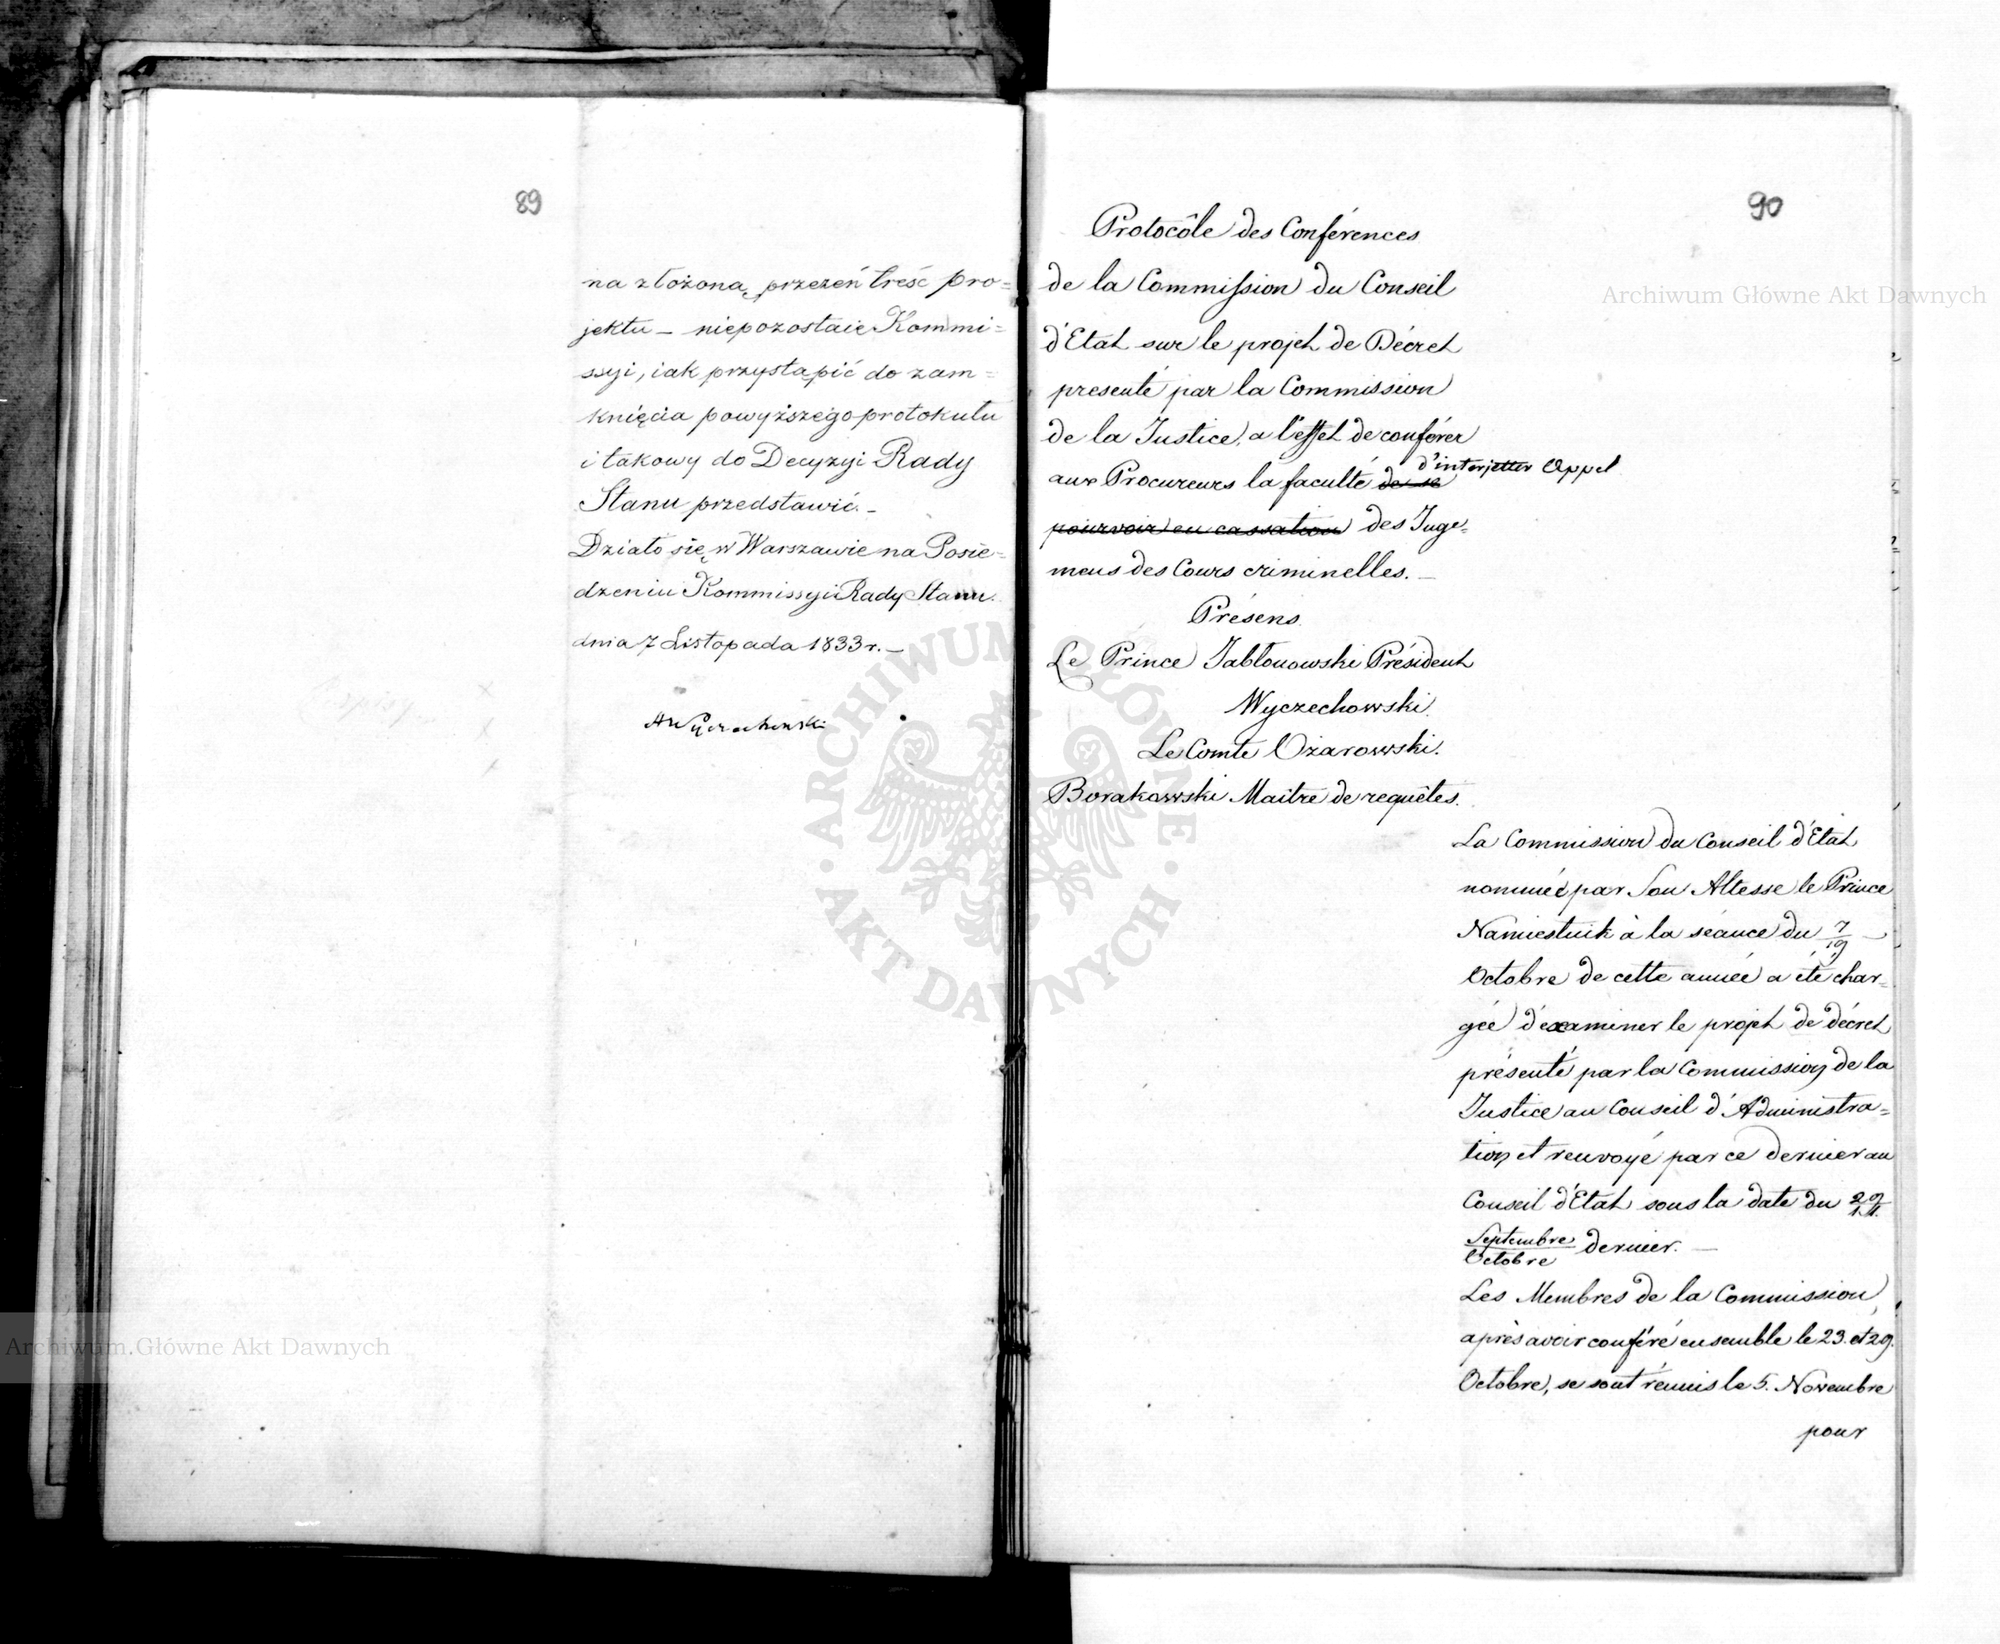 89
na złożoną przezeń treść pro=
jektu – niepozostaie Kommi=
ssyi, iak przystąpić do zam=
knięcia powyższego protokułu
i takowy do Decyzyi Rady
Stanu przedstawić. –
Działo się w Warszawie na Posie=
dzeniu Kommissyi Rady Stanu
dnia 7 Listopada 1833 r. –
AWyczechowski
90
Protocôle des Conférences
de la Commission du Conseil
d'Etat sur le projet de Décret
presenté par la Commission
de la Justice, a l'effet de conférer
d'interjetter Appel
aux Procureurs la faculté de se
pourvoir en cassation des Juge=
mens des Cours criminelles. –
Présens
Le Prince Jabłonowski Président
Wyczechowski.
Le Comte Ożarowski.
Borakowski Maitre de requêtes.
La Commission du Conseil d'Etat
nommée par Son Altesse le Prince
Namiestnik à la séance du 7/19 –
Octobre de cette année a été char=
gée d'examiner le projet de décret
présenté par la Commission de la
Justice au Conseil d'Administra=
tion et renvoyé par ce dernier au
Conseil d'Etat sous la date du 29/11
Septembre/Octobre dernier. –
Les Membres de la Commission,
après avoir conféré ensemble le 23. et 29.
Octobre, se sont réunis le 5. Novembre
pour
Archiwum Główne Akt Dawnych
Archiwum Główne Akt Dawnych
ARCHIWUM GŁÓWNE · AKT DAWNYCH ·